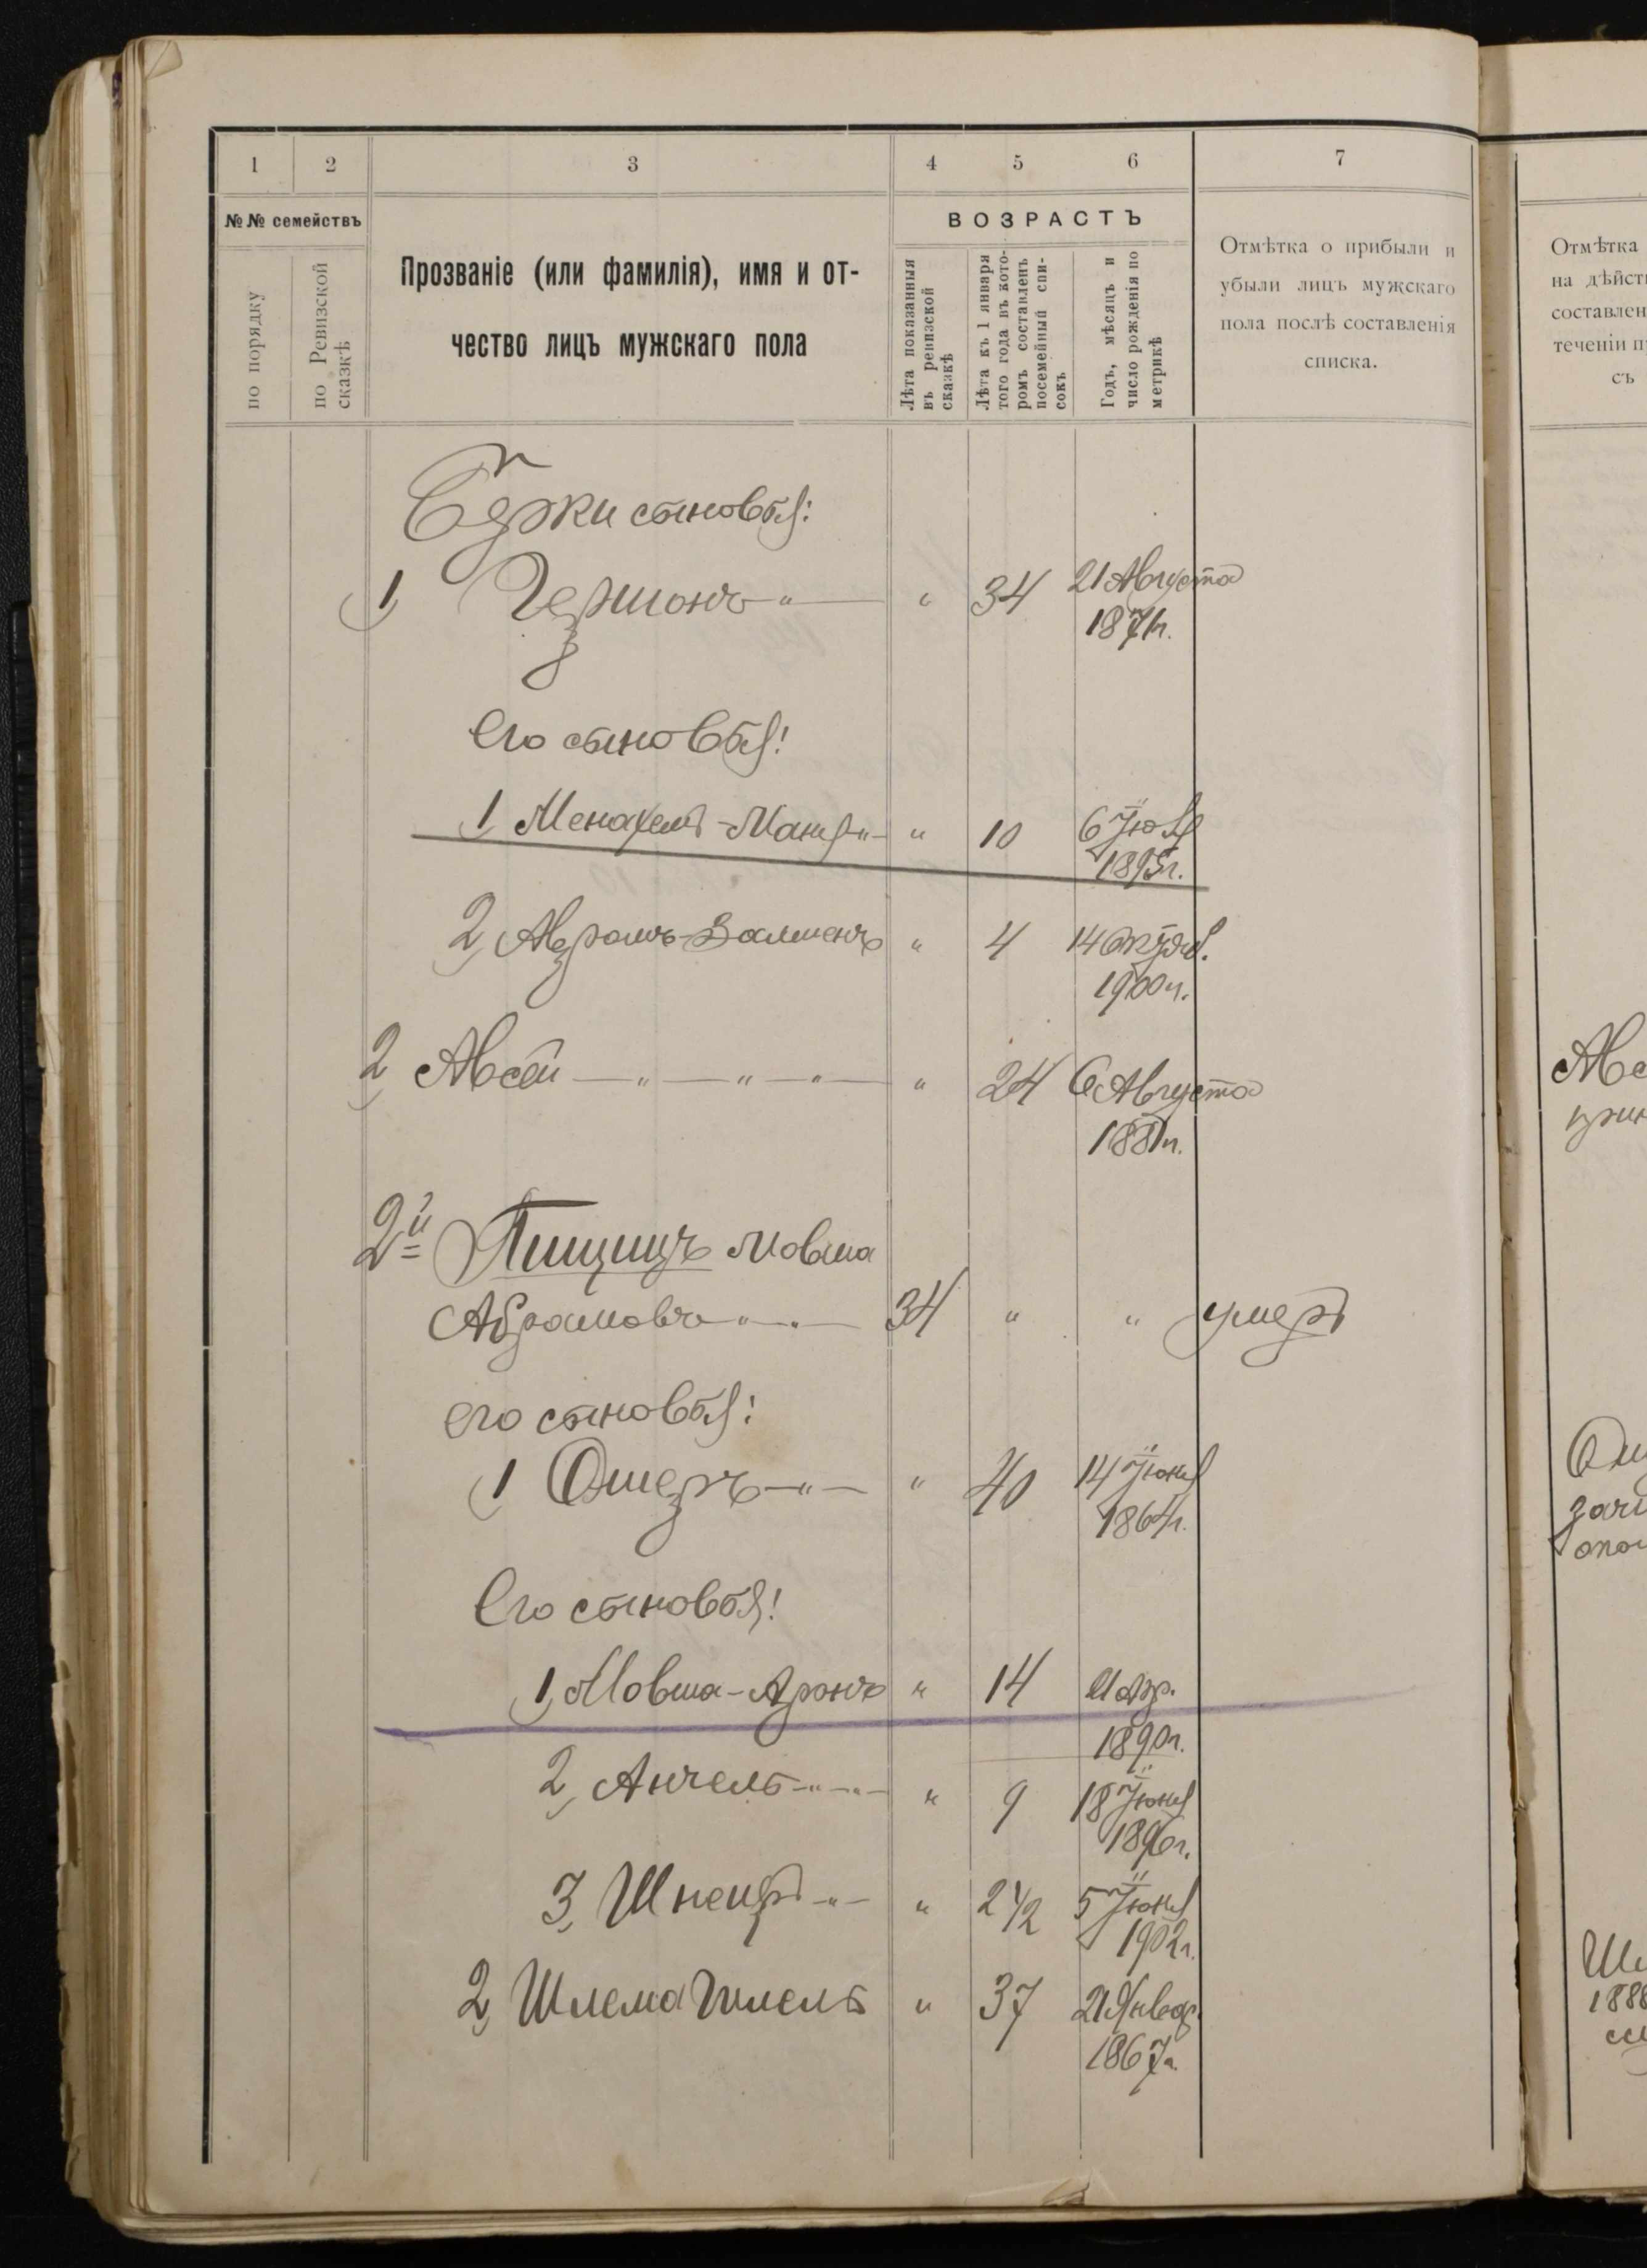 1 2 3 4 5 6 7
№№ семействъ
по порядку
по Ревизской сказкѣ
Прозваніе (или фамилія), имя и от-
чество лицъ мужскаго пола
ВОЗРАСТЪ
Лѣта показанныя
въ ревизской
сказкѣ
Лѣта къ 1 января
того года въ кото-
ромъ составленъ
посемейный спи-
сокъ
Годъ, мѣсяцъ и
число рожденія по
метрикѣ
Отмѣтка о прибыли и
убыли лицъ мужскаго
пола послѣ составленія
списка.
Отмѣтка
на дѣйст
составлен
теченіи п
съ
сыновья:
1, Гершонъ " " 34 21 Августа
1871г.
Его сыновья:
1, Менахемъ- " " 10 6 Июля
1895г.
2, Абрамъ-Залменъ " 4 14 Октяб.
1900г.
2, Авсей " " " " 24 6 Августа
1881г.
2й Мовша
Абрамовъ " " 34 " " умеръ
его сыновья:
1 Ошеръ " " 40 14 Июня
1864г.
Его сыновья:
1, Мовша-Аронъ " 14 21 Апр.
1890г.
2, Анчель " " " 9 18 Июня
1896г.
3, Шнеуръ " " 2 1/2 5 Июня
1902г.
2, Шлема " 37 21 Январ.
1867г.